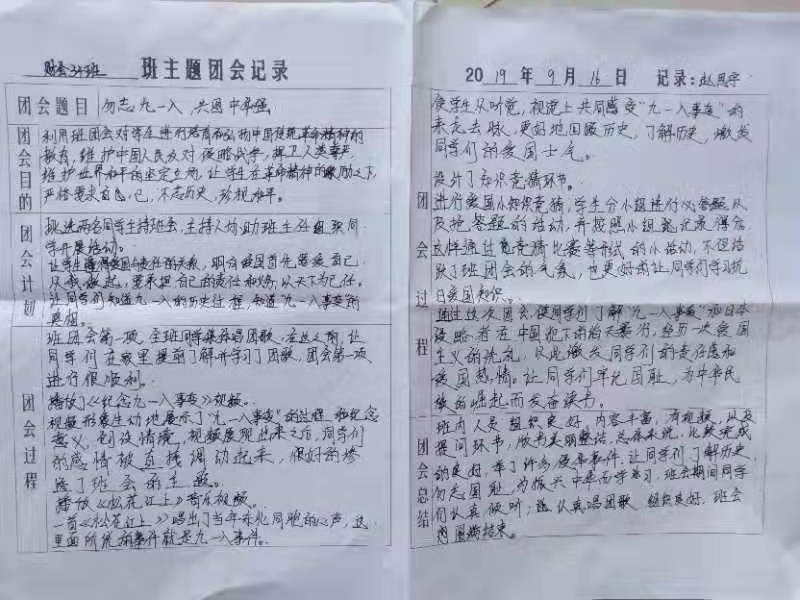 财会34班 班主题团会记录
团会题目 勿忘九一八 共圆中华强
团会目的
利用班团会对学生进行培育和弘扬中国传统革命精神的
教育,维护中国人民反对侵略战争,捍卫人类尊严,
维护世界和平的坚定立场,让学生在革命精神的激励之下,
严格要求自己,不忘历史,珍视和平。
团会计划
班选两名同学主持班会,主持人协助班主任组织同
学开展活动。
让学生懂得爱国与责任的关系,明确爱国首先要从自己
从我做起,要承担自己的责任和义务,以天下为己任。
让同学们知道九一八的历史过程,知道"九一八事变"的
真相。
团会过程
班团会第一项,全班同学集体唱团歌,在这之前,让
同学们在教室提前了解并学习了团歌,团会第一项
进行很顺利。
播放了《纪念九一八事变》视频。
视频形象生动地展示了"九一八事变"的过程和纪念
意义,创设情境,视频展现出来之后,同学们
的感情被直接调动起来,很好的渗
透了班会的主题。
播放《松花江上》音乐视频。
一首《松花江上》唱出了当年东北同胞的心声,这
里面所说的事件就是九一八事件。
2019年9月16日 记录:赵思宇
团会过程
使学生从听觉,视觉上共同感受"九一八事变"的
来龙去脉,更好地回顾历史,了解历史,激发
同学们的爱国士气。
设计了知识竞猜环节。
进行爱国小知识竞猜,学生分小组进行必答题以
及抢答题的活动,并按照小组记录得分
这样通过竞猜比赛等形式的小活动,不但活
跃了班团会的气氛,也更好的让同学们学习抗
日爱国知识。
通过这次团会,使同学们了解"九一八事变"和日本
侵略者在中国犯下的滔天罪行,经历一次爱国
主义的洗礼,以此激发同学们的责任感和
爱国热情。让同学们牢记国耻,为中华民
族的崛起而发奋读书。
团会总结
班内人员组织良好,内容丰富,有视频,以及
提问环节,做的美丽整洁,总体来说,比较完成
的良好,举了许多史事事件,让同学们了解历史
勿忘国耻,为振兴中华而学习,班会期间同学
们认真倾听,认真唱团歌,组织良好,班会
圆满结束。